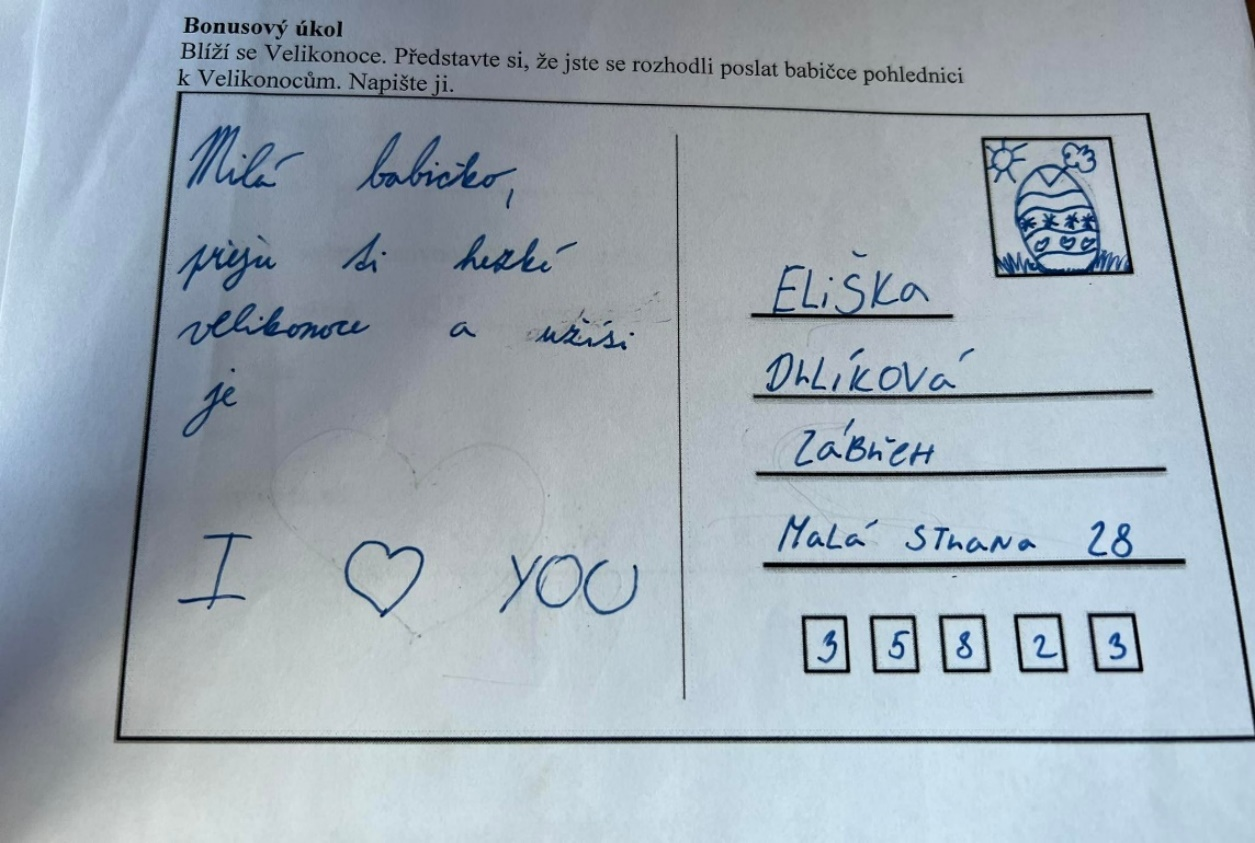 Bonusový úkol
Blíží se Velikonoce. Představte si, že jste se rozhodli poslat babičce pohlednici
k Velikonocům. Napište ji.
Milá babičko,
přeju si hezké
velikonoce a užísi
je
I ♡ YOU
ELiŠKa
DhLÍKOVá
ZáBřeH
MaLá STRaNa 28
3 5 8 2 3